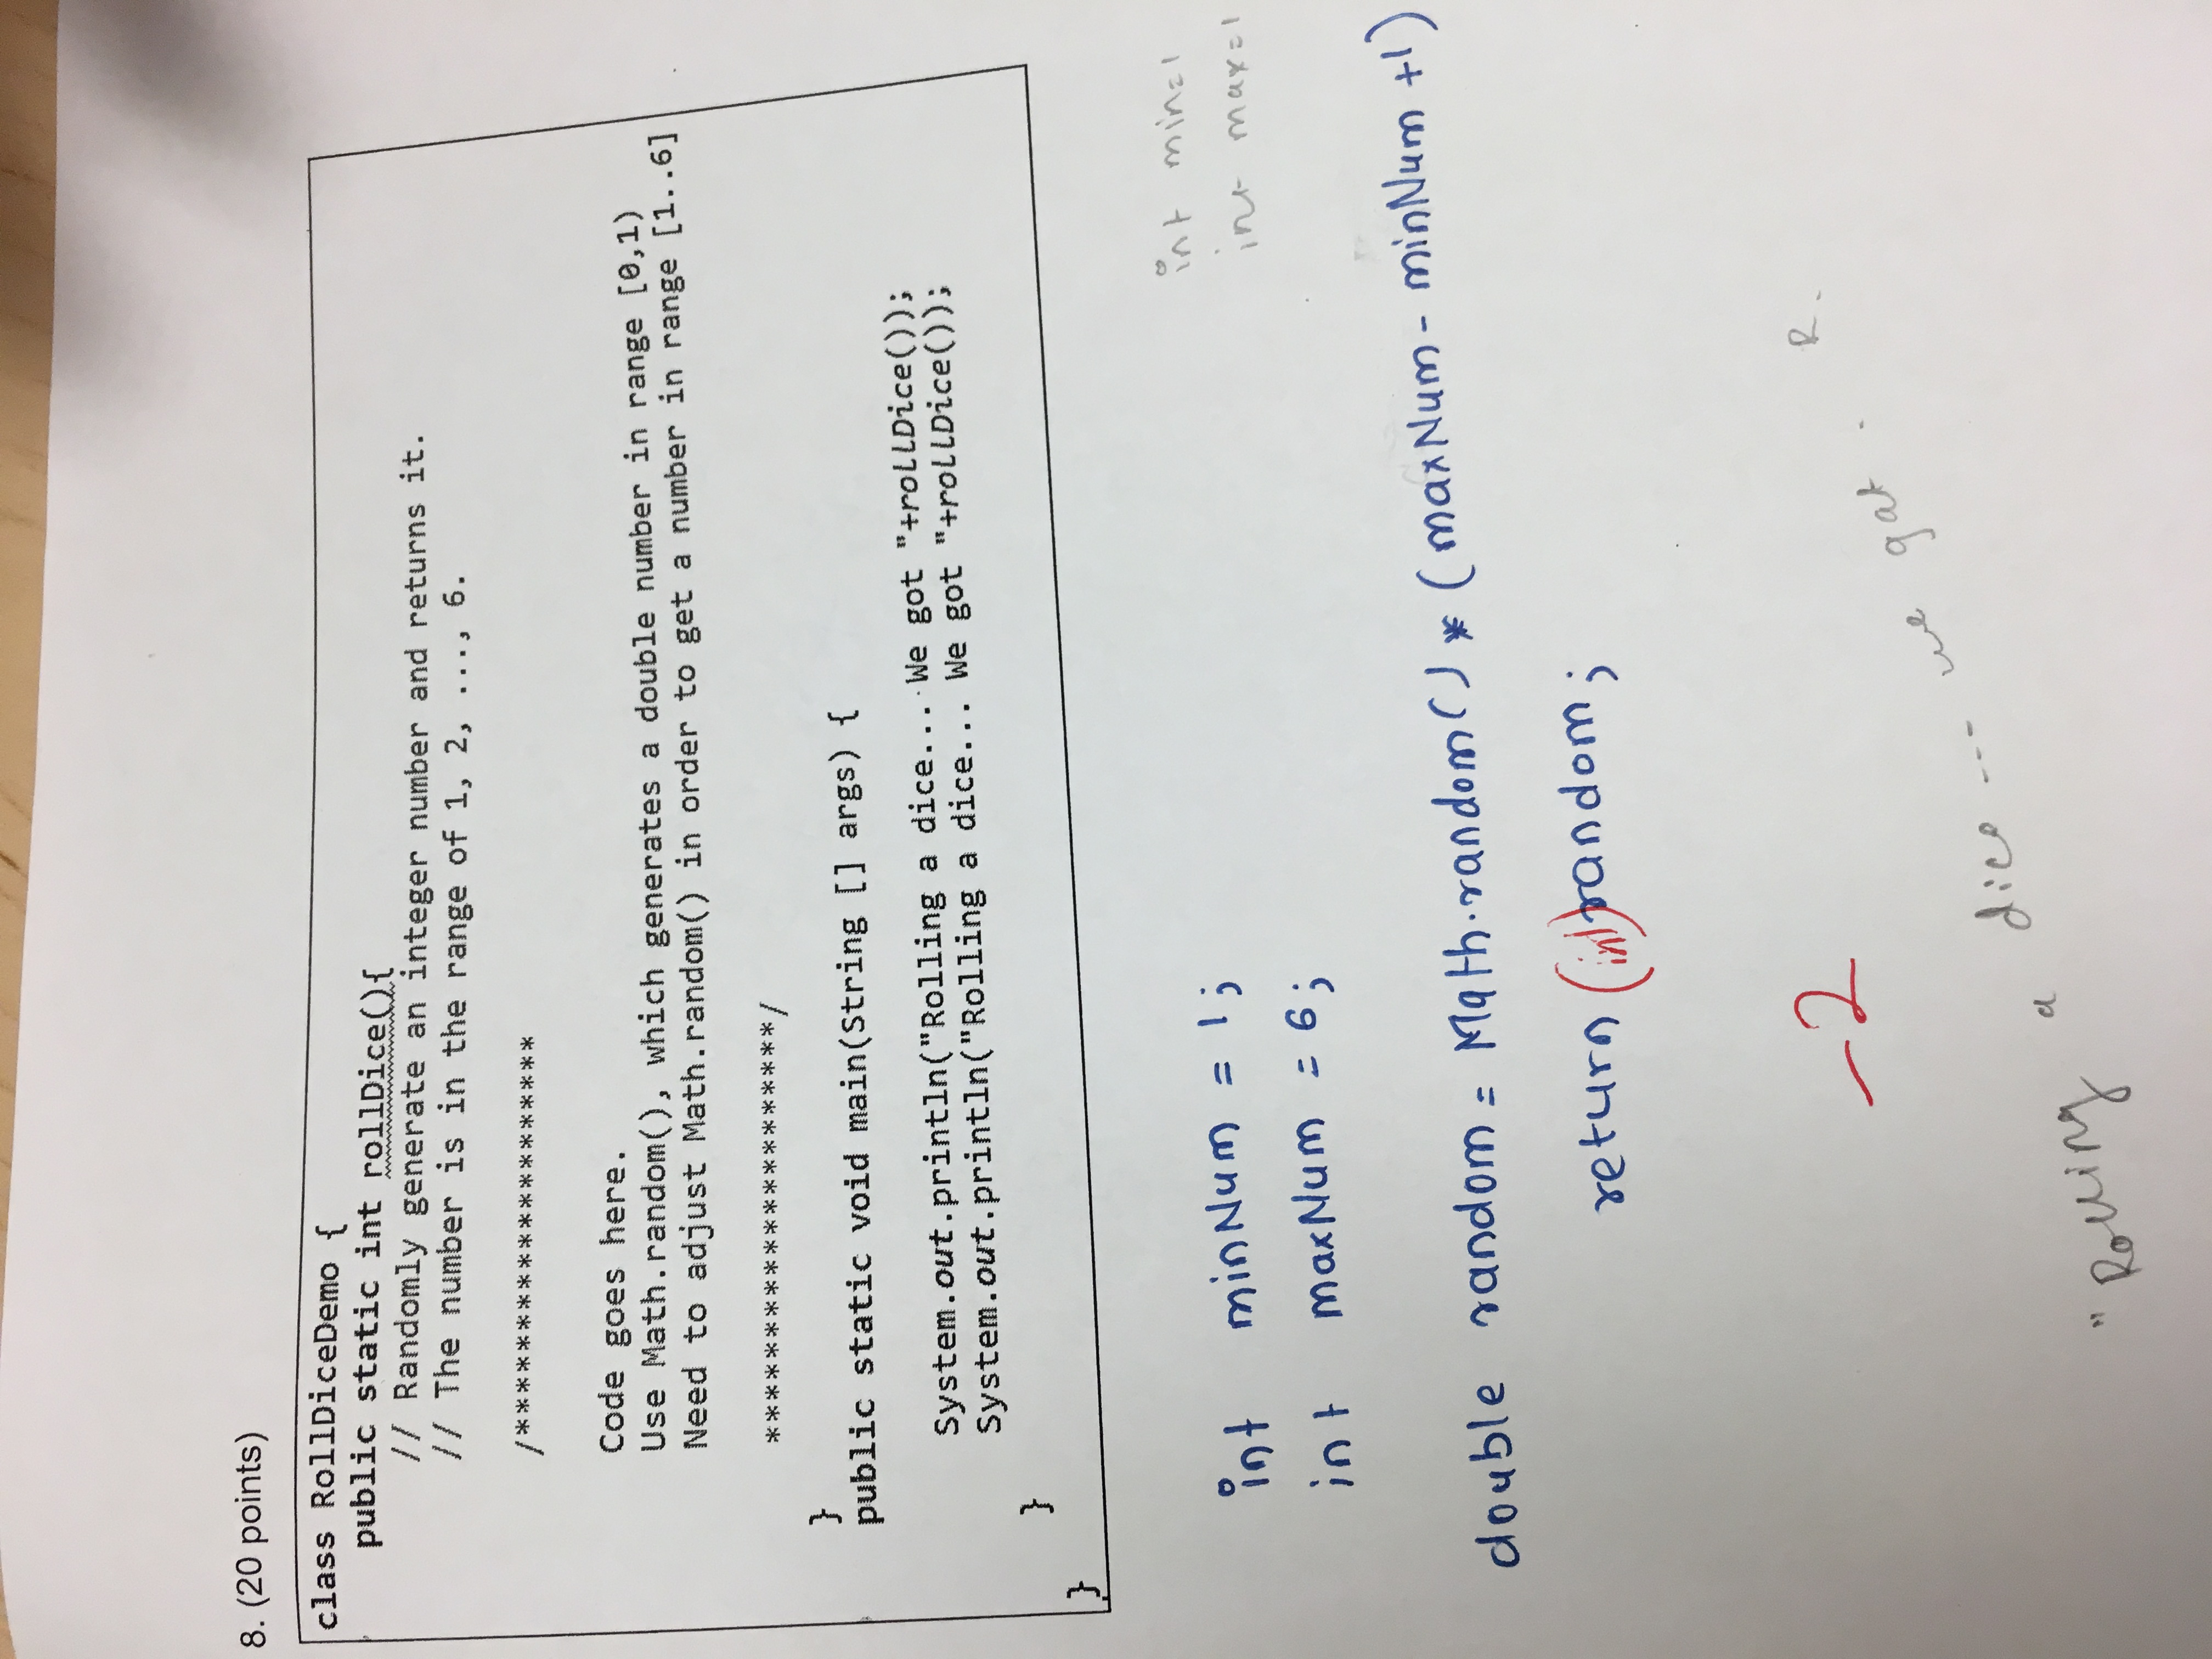 8. (20 points)
class RollDiceDemo {
public static int rollDice(){
// Randomly generate an integer number and returns it.
// The number is in the range of 1, 2, ..., 6.
/*******************
Code goes here.
Use Math.random(), which generates a double number in range [0,1)
Need to adjust Math.random() in order to get a number in range [1..6]
********************/
}
public static void main(String [] args) {
System.out.println("Rolling a dice... We got "+rollDice());
System.out.println("Rolling a dice... We got "+rollDice());
}
}
int min=1
int max=1
int minNum = 1;
int maxNum = 6;
double random = Math.random() * (maxNum - minNum +1)
return (int)random;
-2
R.
"Rolling a dice --- we gat .